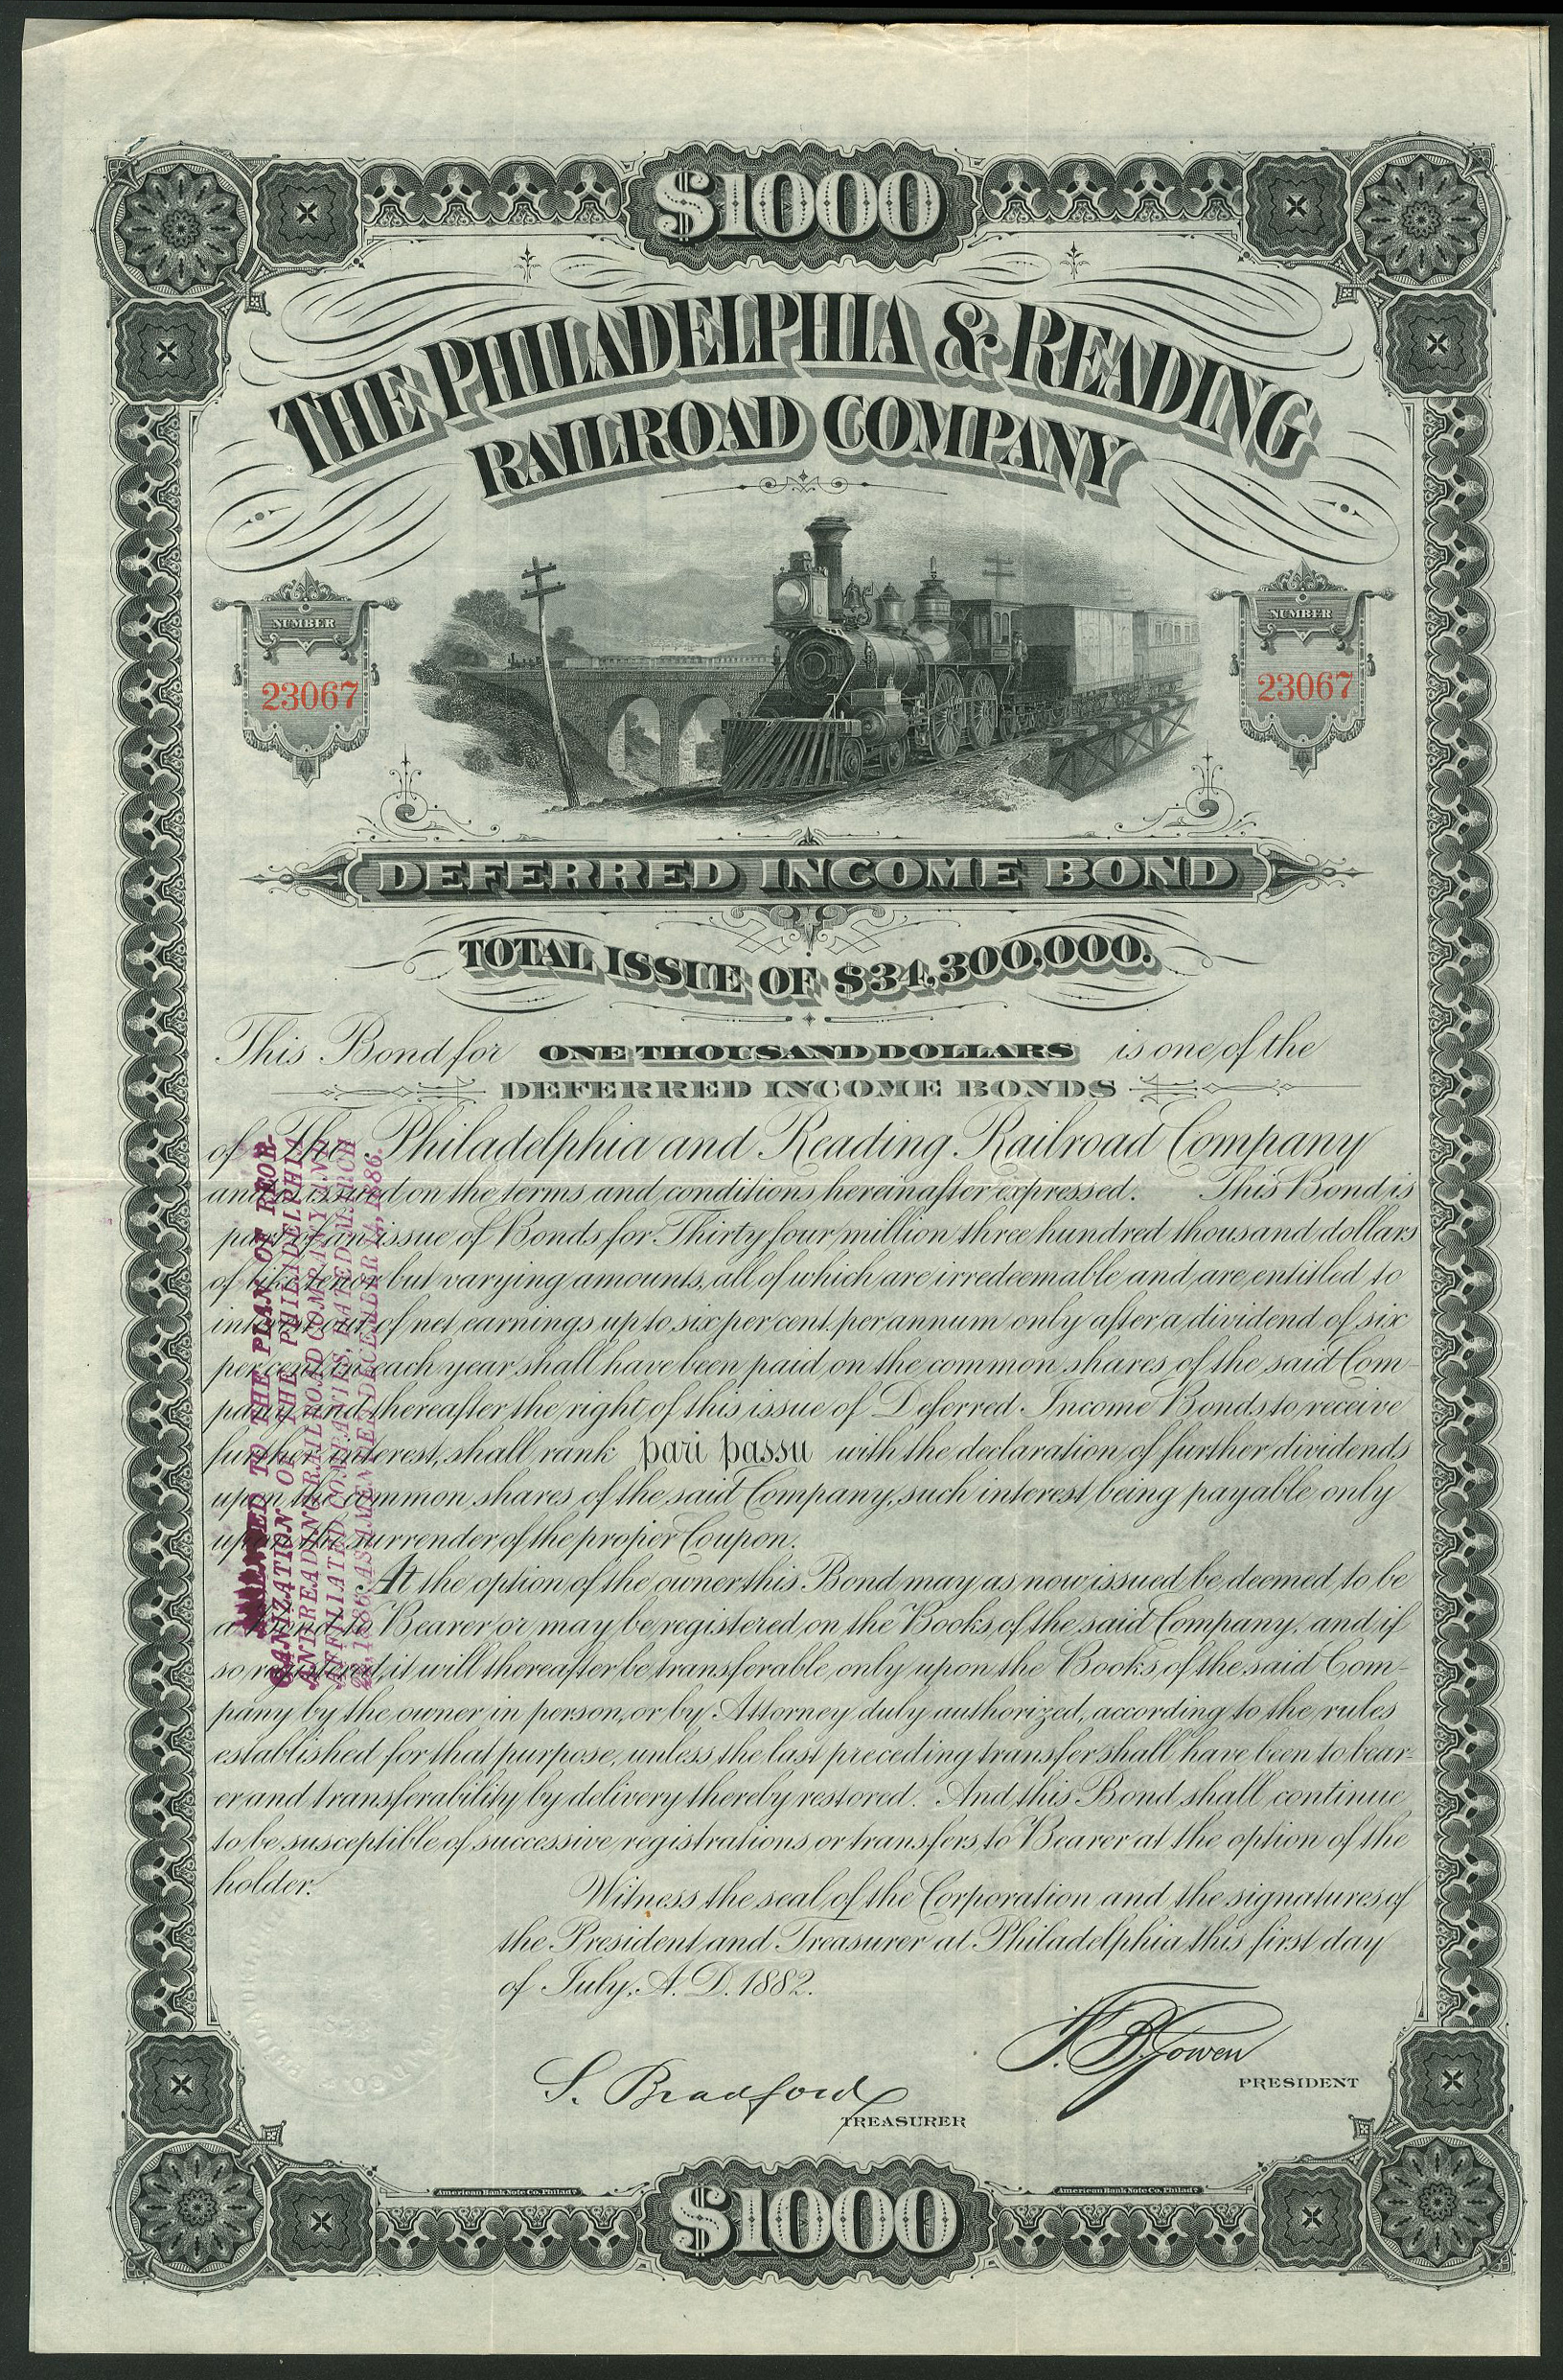 $1000
THE PHILADELPHIA & READING
RAILROAD COMPANY
NUMBER
23067
NUMBER
23067
DEFERRED INCOME BOND
TOTAL ISSUE OF $34,300,000.
This Bond for ONE THOUSAND DOLLARS is one of the
DEFERRED INCOME BONDS
of The Philadelphia and Reading Railroad Company
and is issued on the terms and conditions hereinafter expressed. This Bond is
part of an issue of Bonds for Thirty four million three hundred thousand dollars
of like tenor but varying amounts, all of which are irredeemable and are entitled to
interest out of net earnings up to six per cent. per annum only after a dividend of six
per cent in each year shall have been paid on the common shares of the said Com-
pany and thereafter the right of this issue of Deferred Income Bonds to receive
further interest, shall rank pari passu with the declaration of further dividends
upon the common shares of the said Company, such interest being payable only
upon the surrender of the proper Coupon.
At the option of the owner this Bond may as now issued be deemed to be
a Bond to Bearer or may be registered on the Books of the said Company, and if
so registered, it will thereafter be transferable only upon the Books of the said Com-
pany by the owner in person, or by Attorney duly authorized, according to the rules
established for that purpose, unless the last preceding transfer shall have been to bear-
er and transferability by delivery thereby restored. And this Bond shall continue
to be susceptible of successive registrations or transfers to Bearer at the option of the
holder.
Witness the seal of the Corporation and the signatures of
the President and Treasurer at Philadelphia this first day
of July, A. D. 1882.
F. B. Gowen
PRESIDENT
S. Bradford
TREASURER
American Bank Note Co. Philada
American Bank Note Co. Philada
$1000
TO THE PLAN OF REOR-
GANIZATION OF THE PHILADELPHIA
AND READING RAILROAD COMPANY AND
AFFILIATED COMPANIES, DATED MARCH
1886, AS AMENDED DECEMBER 14, 1886.